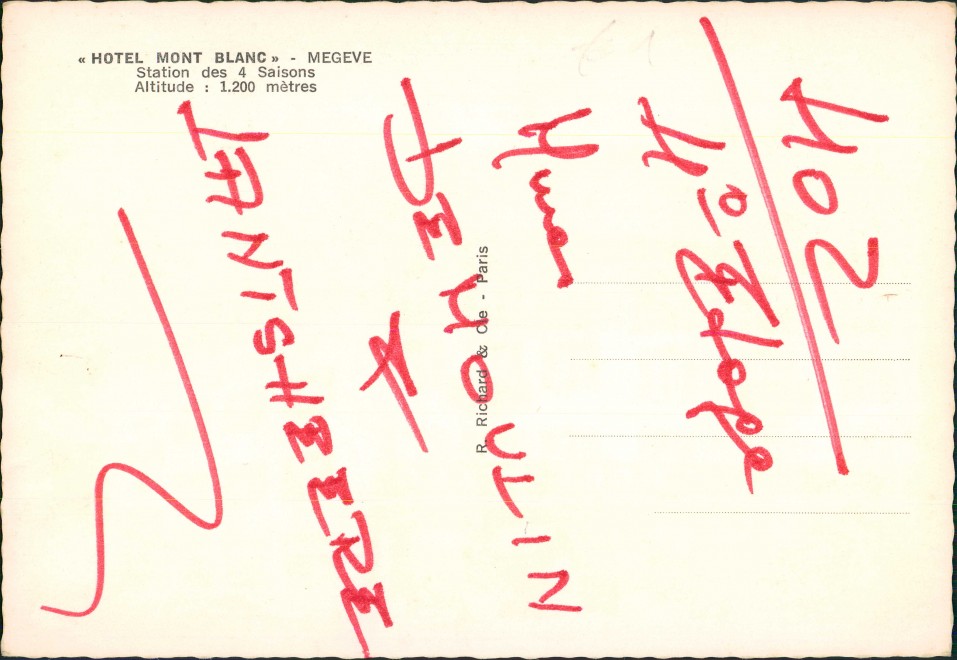 « HOTEL MONT BLANC » - MEGEVE
Station des 4 Saisons
Altitude : 1.200 mètres
R. Richard & Cie - Paris
402
4º Etage
DEMOUTIN
LANTSHEERE